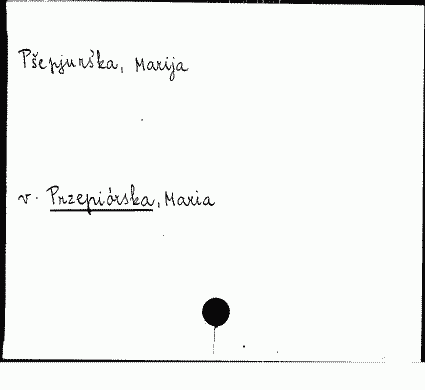 Pšepjurśka, Marija
v. Przepiórska, Maria